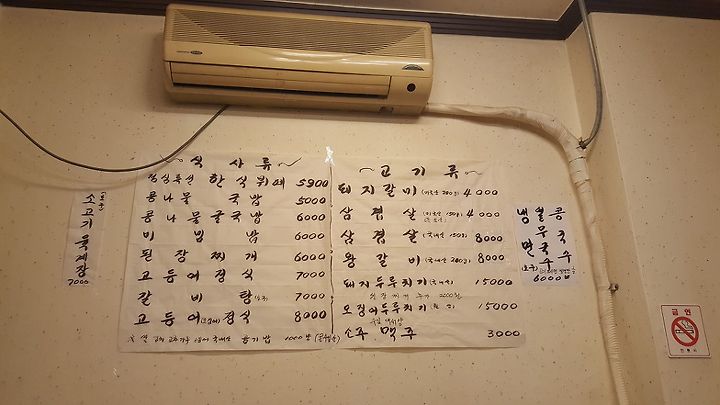 ~ 식사류 ~
점심특선 한식뷔페 5900
콩나물 국밥 5000
콩나물굴국밥 6000
비빔밥 6000
된장찌개 6000
고등어정식 7000
갈비탕 7000
고등어 정식 8000
공기밥 1000
~ 고기류 ~
돼지갈비 4000
삼겹살 4000
삼겹살 (국내산 150g) 8000
왕갈비 8000
돼지두루치기 (국내산) 15000
오징어두루치기 15000
소주 맥주 3000
소고기육계장
7000
냉면
열무국수
콩국수
6000
금연